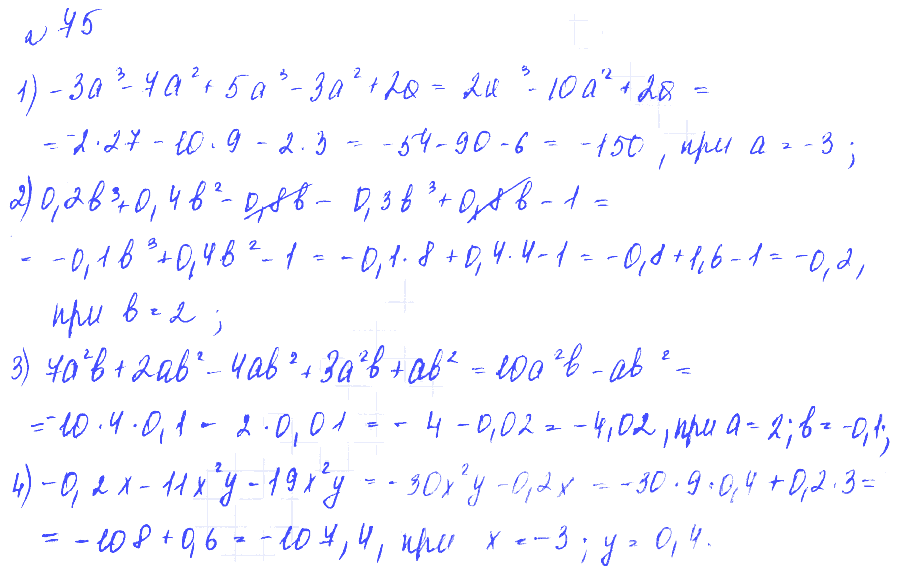 № 75
1) -3a³ - 7a² + 5a³ - 3a² + 2a = 2a³ - 10a² + 2a =
= -2·27 - 10·9 - 2·3 = -54 - 90 - 6 = -150, при a = -3;
2) 0,2b³ + 0,4b² - 0,8b - 0,3b³ + 0,8b - 1 =
- -0,1b³ + 0,4b² - 1 = -0,1·8 + 0,4·4 - 1 = -0,8 + 1,6 - 1 = -0,2,
при b = 2;
3) 7a²b + 2ab² - 4ab² + 3a²b + ab² = 10a²b - ab² =
= -10·4·0,1 - 2·0,01 = -4 - 0,02 = -4,02, при a = 2; b = -0,1;
4) -0,2x - 11x²y - 19x²y = -30x²y - 0,2x = -30·9·0,4 + 0,2·3 =
= -108 + 0,6 = -107,4, при x = -3; y = 0,4.